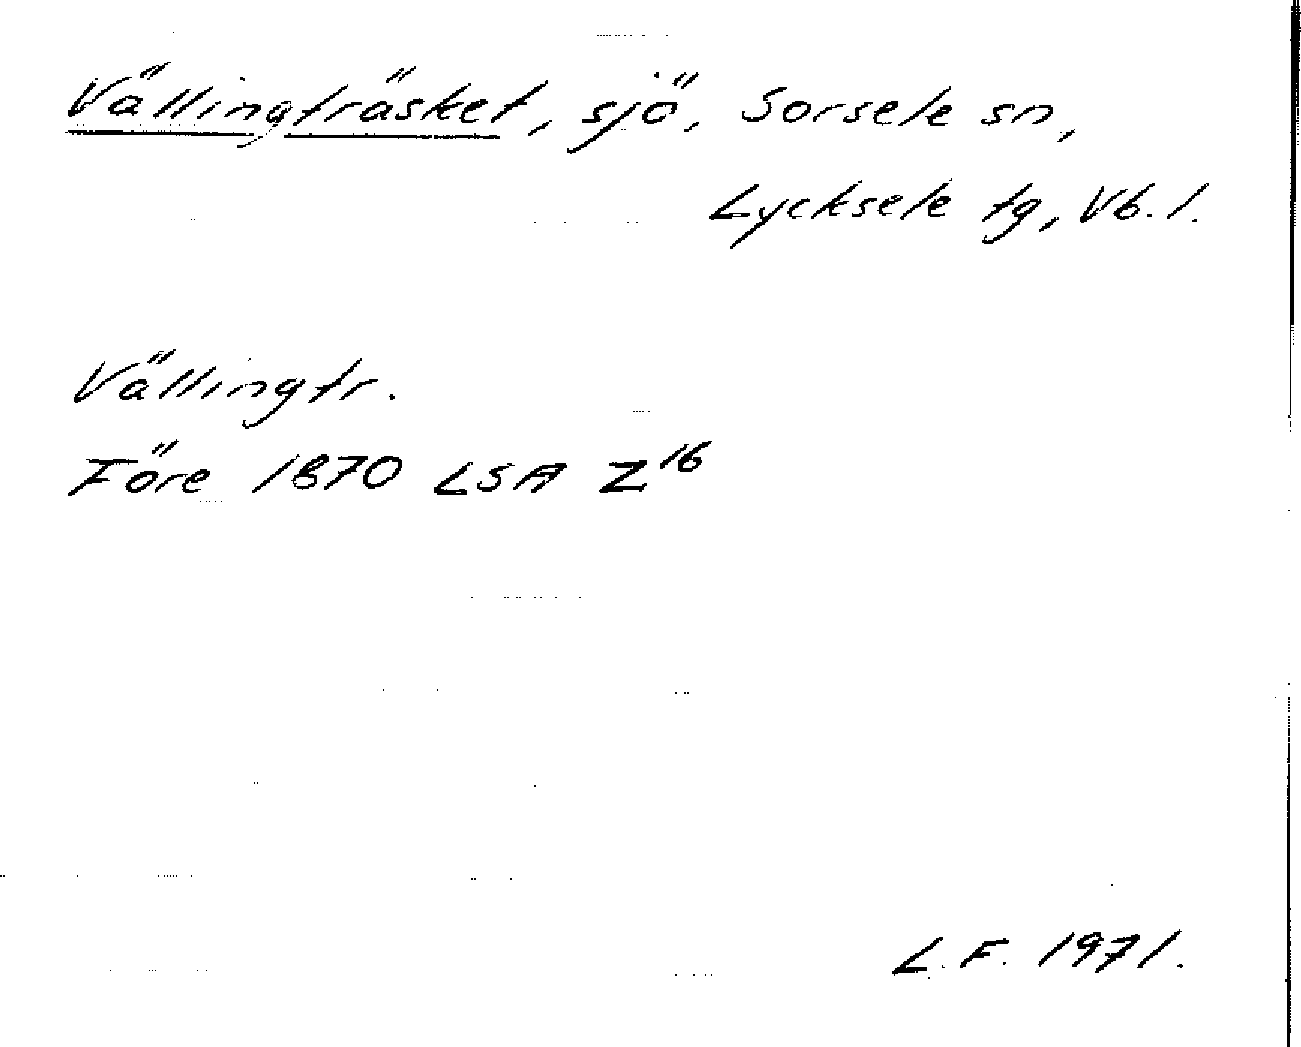 Vällingträsket, sjö, Sorsele sn,
Lycksele tg, Vb. l.
Vällingtr.
Före 1870 LSA Z¹⁶
L. F. 1971.